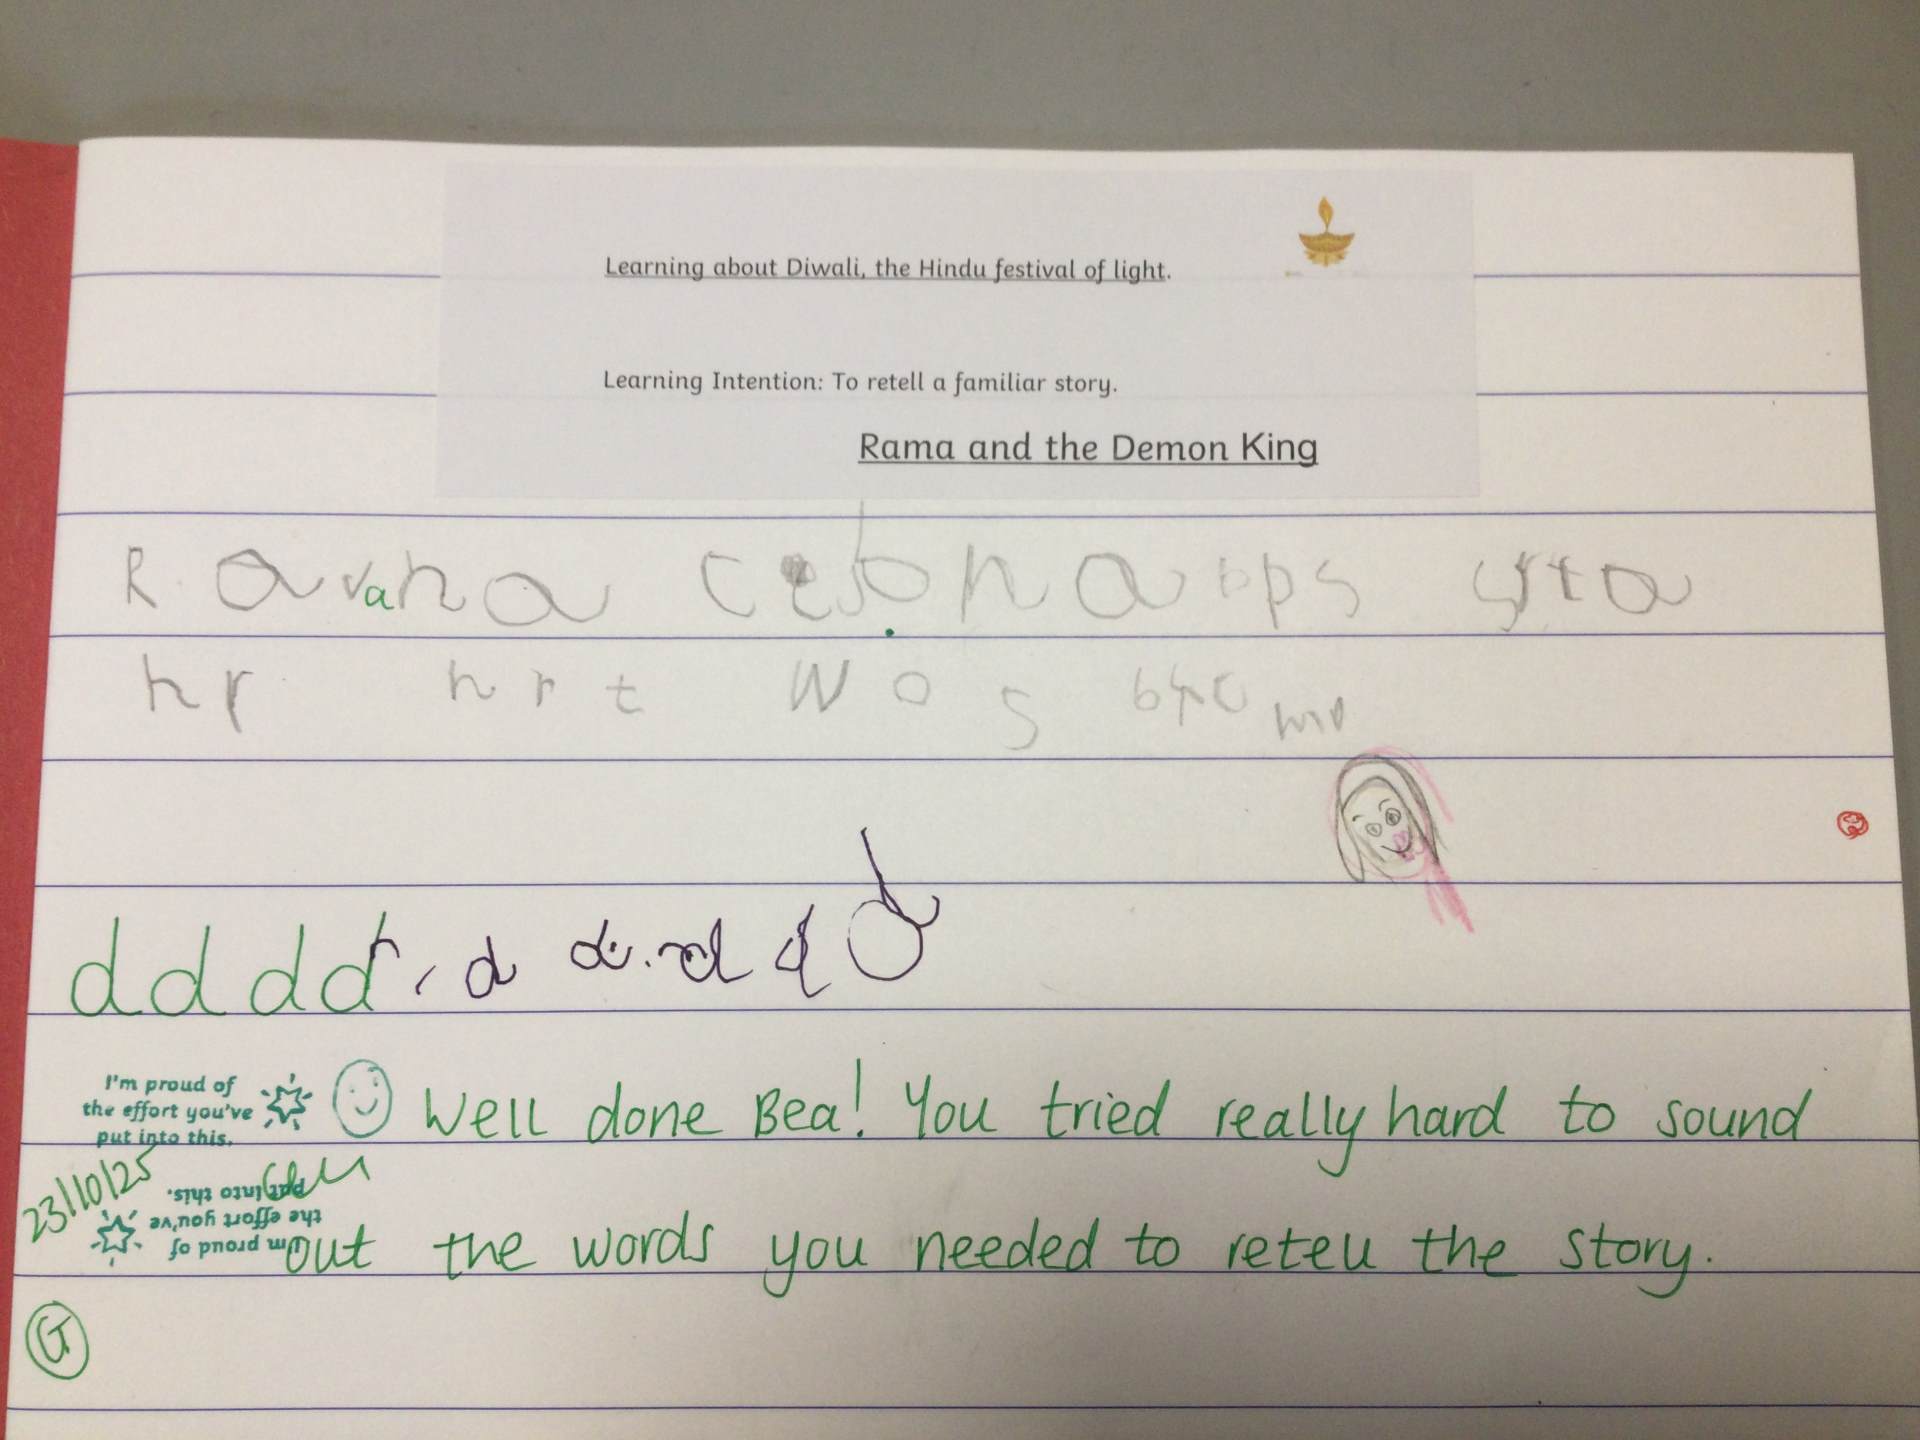 Learning about Diwali, the Hindu festival of light.
Learning Intention: To retell a familiar story.
Rama and the Demon King
Ravana naps sita
hr hrt wos
d d d d d d d d d
I'm proud of
the effort you've
put into this.
Well done Bea! You tried really hard to sound
out the words you needed to retell the story.
23/10/25
I'm proud of
the effort you've
put into this.